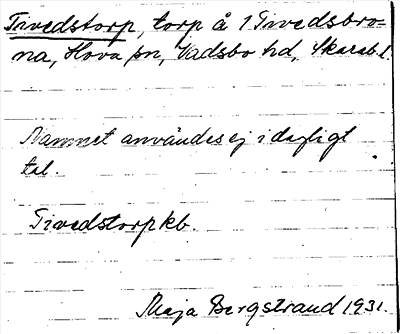 Tivedstorp, torp å 1 Tivedsbro-
na, Hova sn, Vadsbo hd, Skarab. l.
Namnet användes ej i dagligt
tal.
Tivedstorp kb.
Maja Bergstrand 1931.